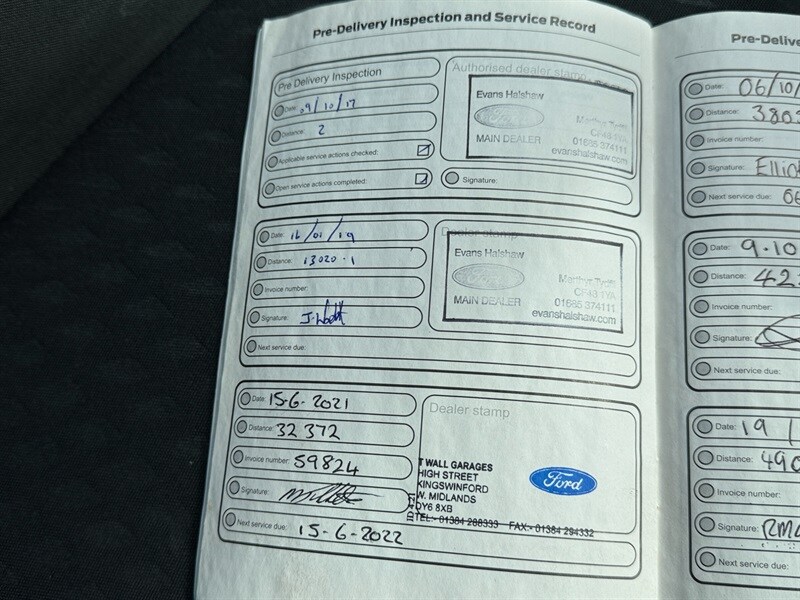 Pre-Delivery Inspection and Service Record
Pre Delivery Inspection
Date: 09/10/17
Distance: 2
Applicable service actions checked:
Open service actions completed:
Authorised dealer stamp
Evans Halshaw
Ford
Merthyr Tydfil
CF48 1YA
MAIN DEALER 01685 374111
evanshalshaw.com
Signature:
Date: 16/01/19
Distance: 13020.1
Invoice number:
Signature:
Next service due:
Dealer stamp
Evans Halshaw
Ford
Merthyr Tydfil
CF48 1YA
MAIN DEALER 01685 374111
evanshalshaw.com
Date: 15-6-2021
Distance: 32372
Invoice number: 59824
Signature:
Next service due: 15-6-2022
Dealer stamp
T WALL GARAGES
HIGH STREET
KINGSWINFORD
W. MIDLANDS
DY6 8XB
TEL:- 01384 288333 FAX:- 01384 294332
Ford
Pre-Delive
Date: 06/10/
Distance: 380
Invoice number:
Signature: Ellio
Next service due: 06
Date: 9.10
Distance: 42
Invoice number:
Signature:
Next service due:
Date: 19/
Distance: 490
Invoice number:
Signature:
Next service due: